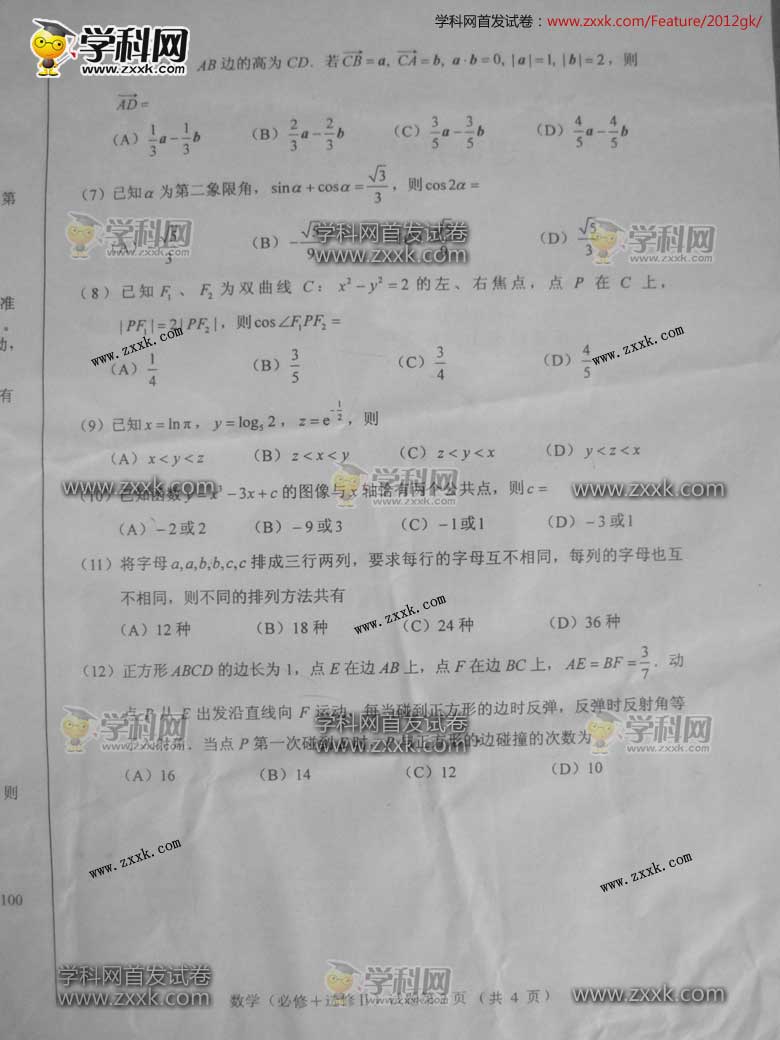 学科网首发试卷：www.zxxk.com/Feature/2012gk/
学科网
www.zxxk.com
AB 边的高为 CD．若 CB = a, CA = b, a·b = 0, |a| = 1, |b| = 2，则
AD =
(A) 1/3 a - 1/3 b (B) 2/3 a - 2/3 b (C) 3/5 a - 3/5 b (D) 4/5 a - 4/5 b
(7) 已知 α 为第二象限角，sin α + cos α = √3/3，则 cos 2α =
第
(A) -√5/3 (B) -√5/9 (D) √5/3
学科网
www.zxxk.com
学科网首发试卷
www.zxxk.com
学科网
www.zxxk.com
(8) 已知 F₁、F₂ 为双曲线 C：x² - y² = 2 的左、右焦点，点 P 在 C 上，
准
|PF₁| = 2|PF₂|，则 cos∠F₁PF₂ =
www.zxxk.com
www.zxxk.com
(A) 1/4 (B) 3/5 (C) 3/4 (D) 4/5
有
(9) 已知 x = ln π，y = log₅ 2，z = e^(-1/2)，则
(A) x < y < z (B) z < x < y (C) z < y < x (D) y < z < x
学科网首发试卷
www.zxxk.com
学科网
www.zxxk.com
学科网首发试卷
www.zxxk.com
(10) 已知函数 y = x - 3x + c 的图像与 x 轴恰有两个公共点，则 c =
(A) -2 或 2 (B) -9 或 3 (C) -1 或 1 (D) -3 或 1
(11) 将字母 a,a,b,b,c,c 排成三行两列，要求每行的字母互不相同，每列的字母也互
不相同，则不同的排列方法共有
www.zxxk.com
(A) 12 种 (B) 18 种 (C) 24 种 (D) 36 种
(12) 正方形 ABCD 的边长为 1，点 E 在边 AB 上，点 F 在边 BC 上，AE = BF = 3/7．动
点 P 从 E 出发沿直线向 F 运动，每当碰到正方形的边时反弹，反弹时反射角等
．当点 P 第一次碰到 的边碰撞的次数为
学科网
www.zxxk.com
学科网首发试卷
www.zxxk.com
学科网
www.zxxk.com
(A) 16 (B) 14 (C) 12 (D) 10
则
www.zxxk.com
www.zxxk.com
100
学科网首发试卷
www.zxxk.com
学科网
www.zxxk.com
学科网首发试卷
www.zxxk.com
数学（必修＋选修Ⅱ） 页（共 4 页）